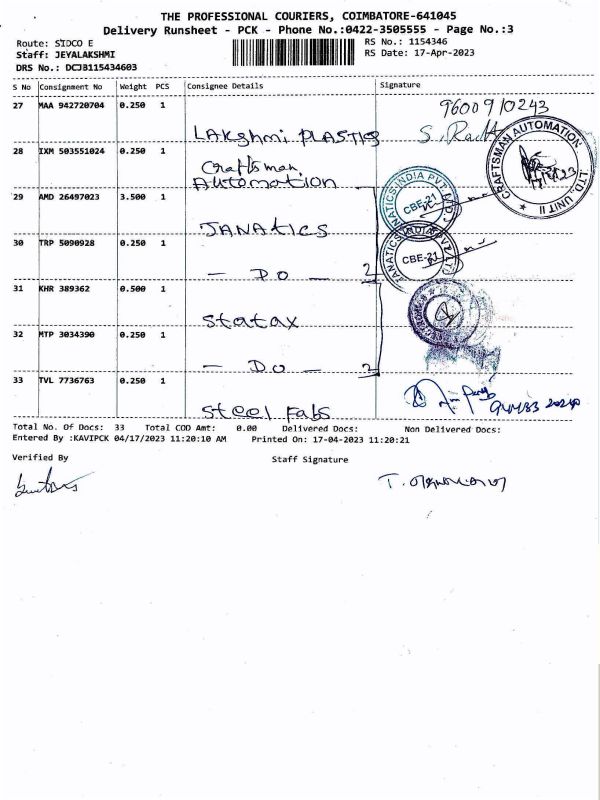 THE PROFESSIONAL COURIERS, COIMBATORE-641045
Delivery Runsheet - PCK - Phone No.:0422-3505555 - Page No.:3
Route: SIDCO E
RS No.: 1154346
Staff: JEYALAKSHMI
RS Date: 17-Apr-2023
DRS No.: DCJB115434603
S No Consignment No Weight PCS Consignee Details Signature
27 MAA 942720704 0.250 1
9600910243
Lakshmi Plastics
28 IXM 503551024 0.250 1
Craftsman
Automation
CRAFTSMAN AUTOMATION LTD., UNIT II ★
29 AMD 26497023 3.500 1
JANATICS
JANATICS INDIA PVT. LTD.
CBE-21
30 TRP 5090928 0.250 1
— Do — 2
JANATICS INDIA PVT. LTD.
CBE-21
31 KHR 389362 0.500 1
Statax
32 MTP 3034390 0.250 1
— Do — 2
33 TVL 7736763 0.250 1
Steel Fabs
Total No. Of Docs: 33 Total COD Amt: 0.00 Delivered Docs: Non Delivered Docs:
Entered By :KAVIPCK 04/17/2023 11:20:10 AM Printed On: 17-04-2023 11:20:21
Verified By
Staff Signature